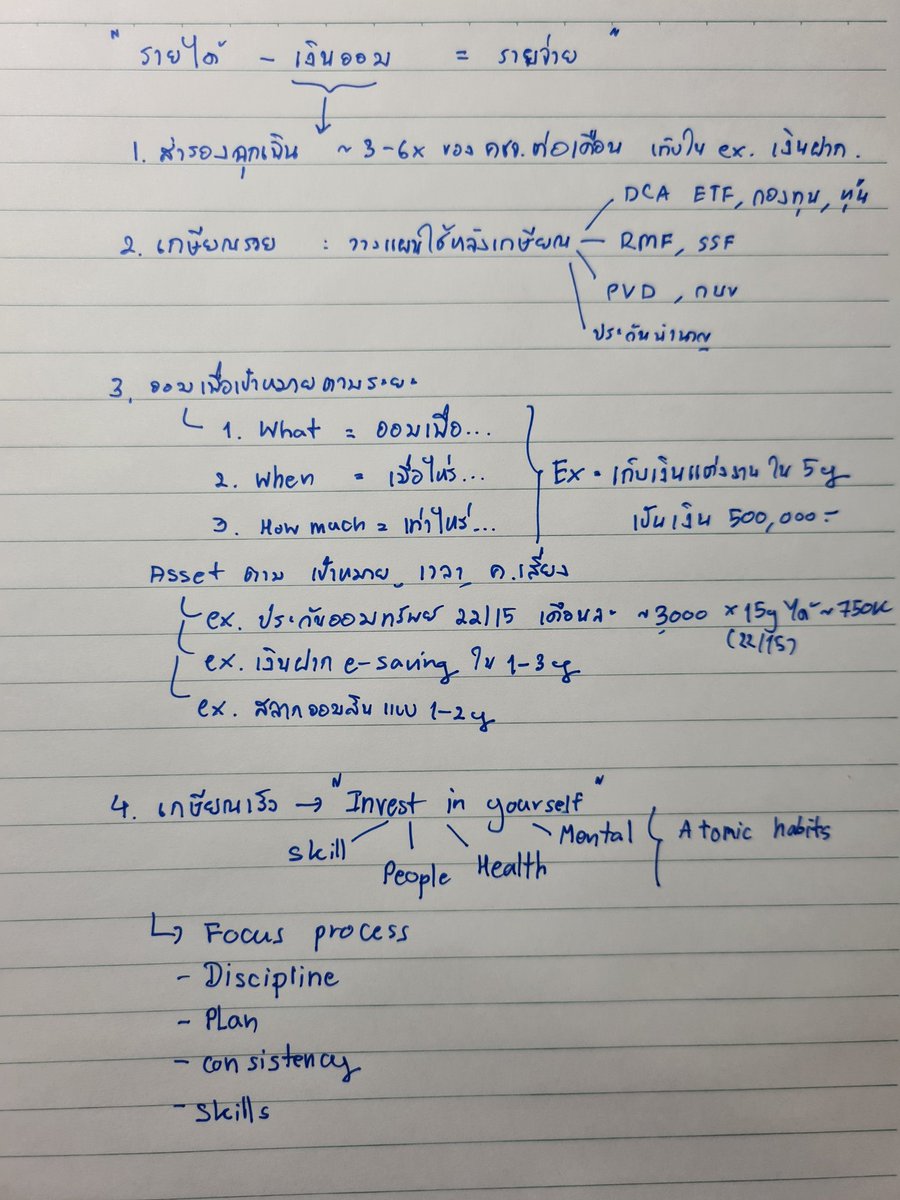 "รายได้ - เงินออม = รายจ่าย"
1. สำรองฉุกเฉิน ~ 3-6x ของ คชจ.ต่อเดือน เก็บใน ex. เงินฝาก.
2. เกษียณรวย : วางแผนใช้หลังเกษียณ
DCA ETF, กองทุน, หุ้น
RMF, SSF
PVD, กบข
ประกันบำนาญ
3. ออมเพื่อเป้าหมายตามระยะ
1. What = ออมเพื่อ...
2. When = เมื่อไหร่...
3. How much = เท่าไหร่...
Ex - เก็บเงินแต่งงาน ใน 5y
เป็นเงิน 500,000.-
Asset ตาม เป้าหมาย, เวลา, ค.เสี่ยง
ex. ประกันออมทรัพย์ 22/15 เดือนละ ~3000 x 15y ได้ ~750k
(22/15)
ex. เงินฝาก e-saving ใน 1-3y
ex. สลากออมสิน แบบ 1-2y
4. เกษียณเร็ว → "Invest in yourself"
Skill People Health Mental
Atomic habits
↳ Focus process
- Discipline
- Plan
- consistency
- skills